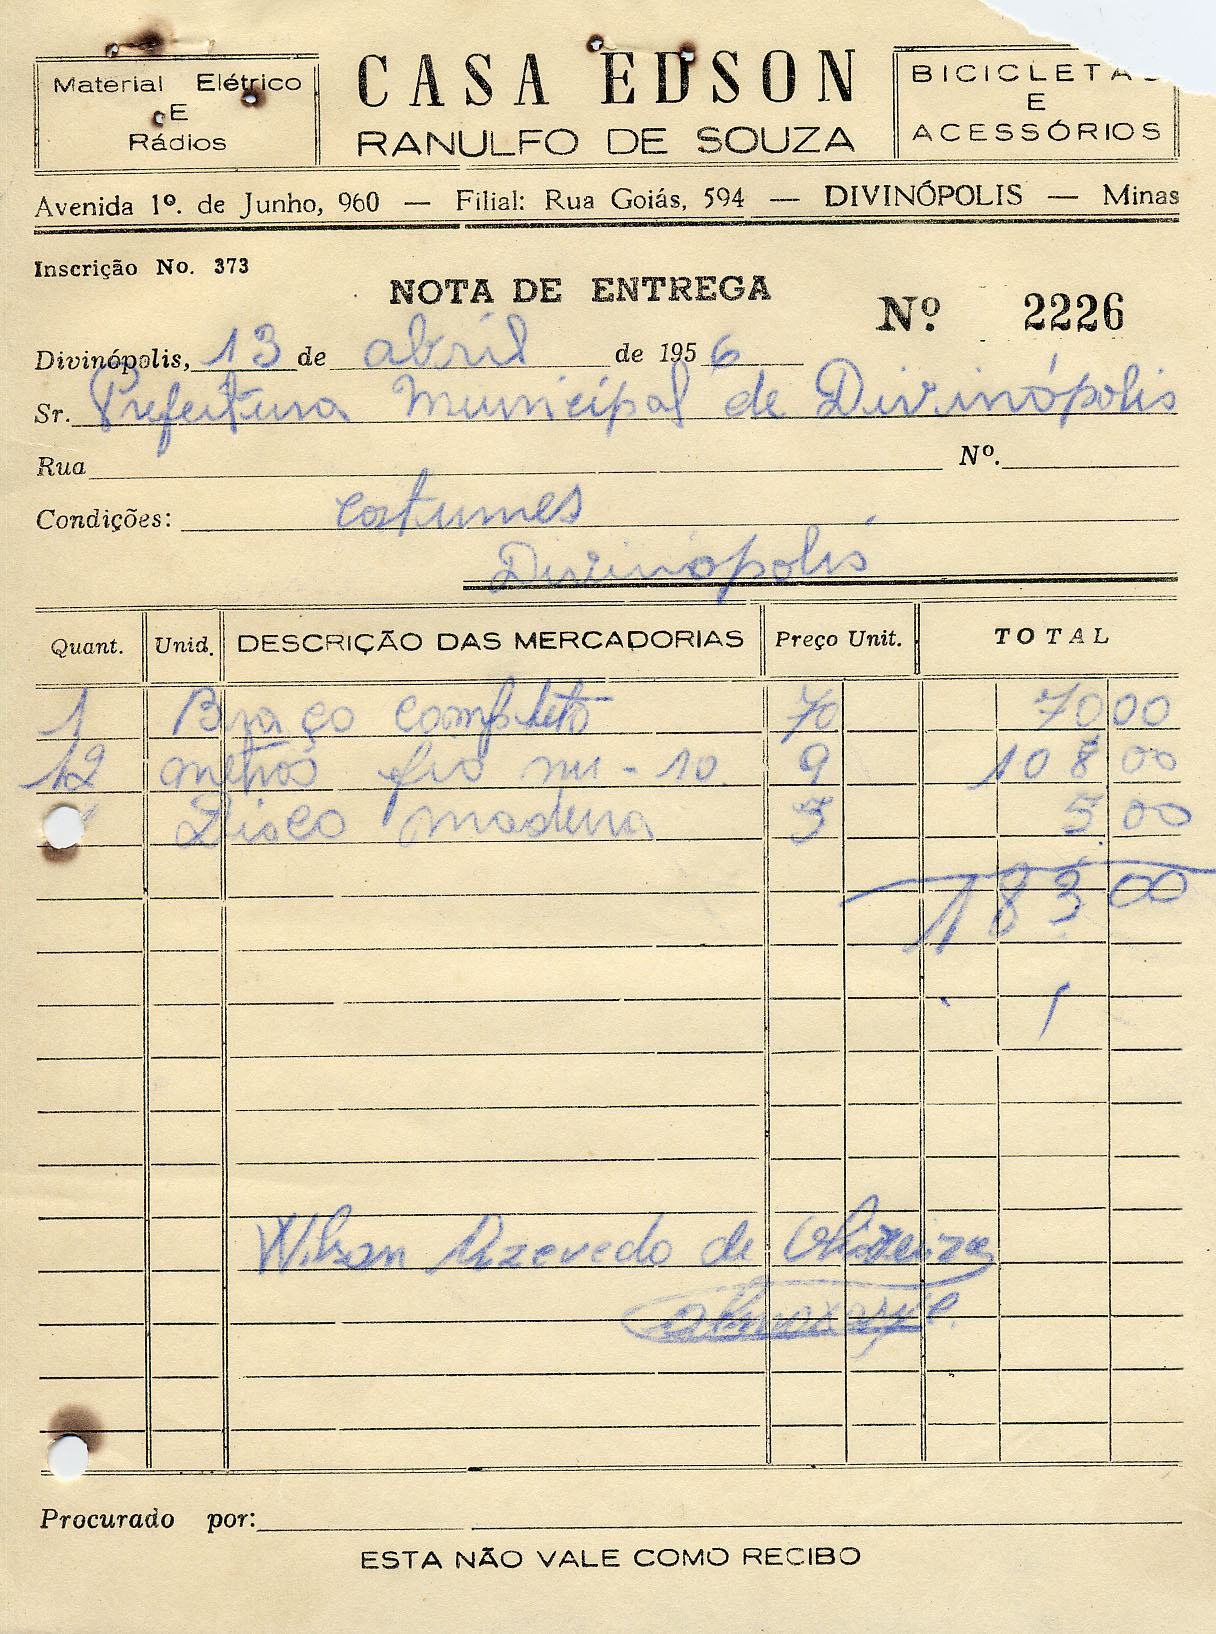 Material Elétrico
E
Rádios
CASA EDSON
RANULFO DE SOUZA
BICICLETAS
E
ACESSÓRIOS
Avenida 1º. de Junho, 960 — Filial: Rua Goiás, 594 — DIVINÓPOLIS — Minas
Inscrição No. 373
NOTA DE ENTREGA
Nº. 2226
Divinópolis, 13 de abril de 1956
Sr. Prefeitura Municipal de Divinópolis
Rua Nº.
Condições: costumes
Divinópolis
Quant. Unid. DESCRIÇÃO DAS MERCADORIAS Preço Unit. TOTAL
1 Braço completo 70 70 00
12 metros fio nu - 10 9 108 00
Disco madeira 5 5 00
183 00
Wilson Azevedo de Oliveira
Almoxarife
Procurado por:
ESTA NÃO VALE COMO RECIBO